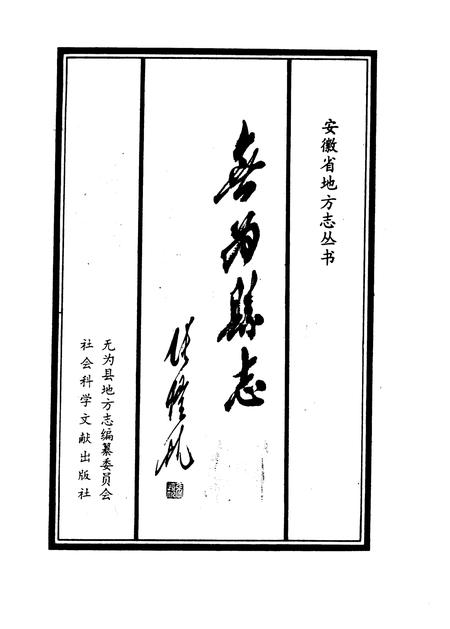 安徽省地方志丛书
無為縣志
張愷帆
无为县地方志编纂委员会
社会科学文献出版社